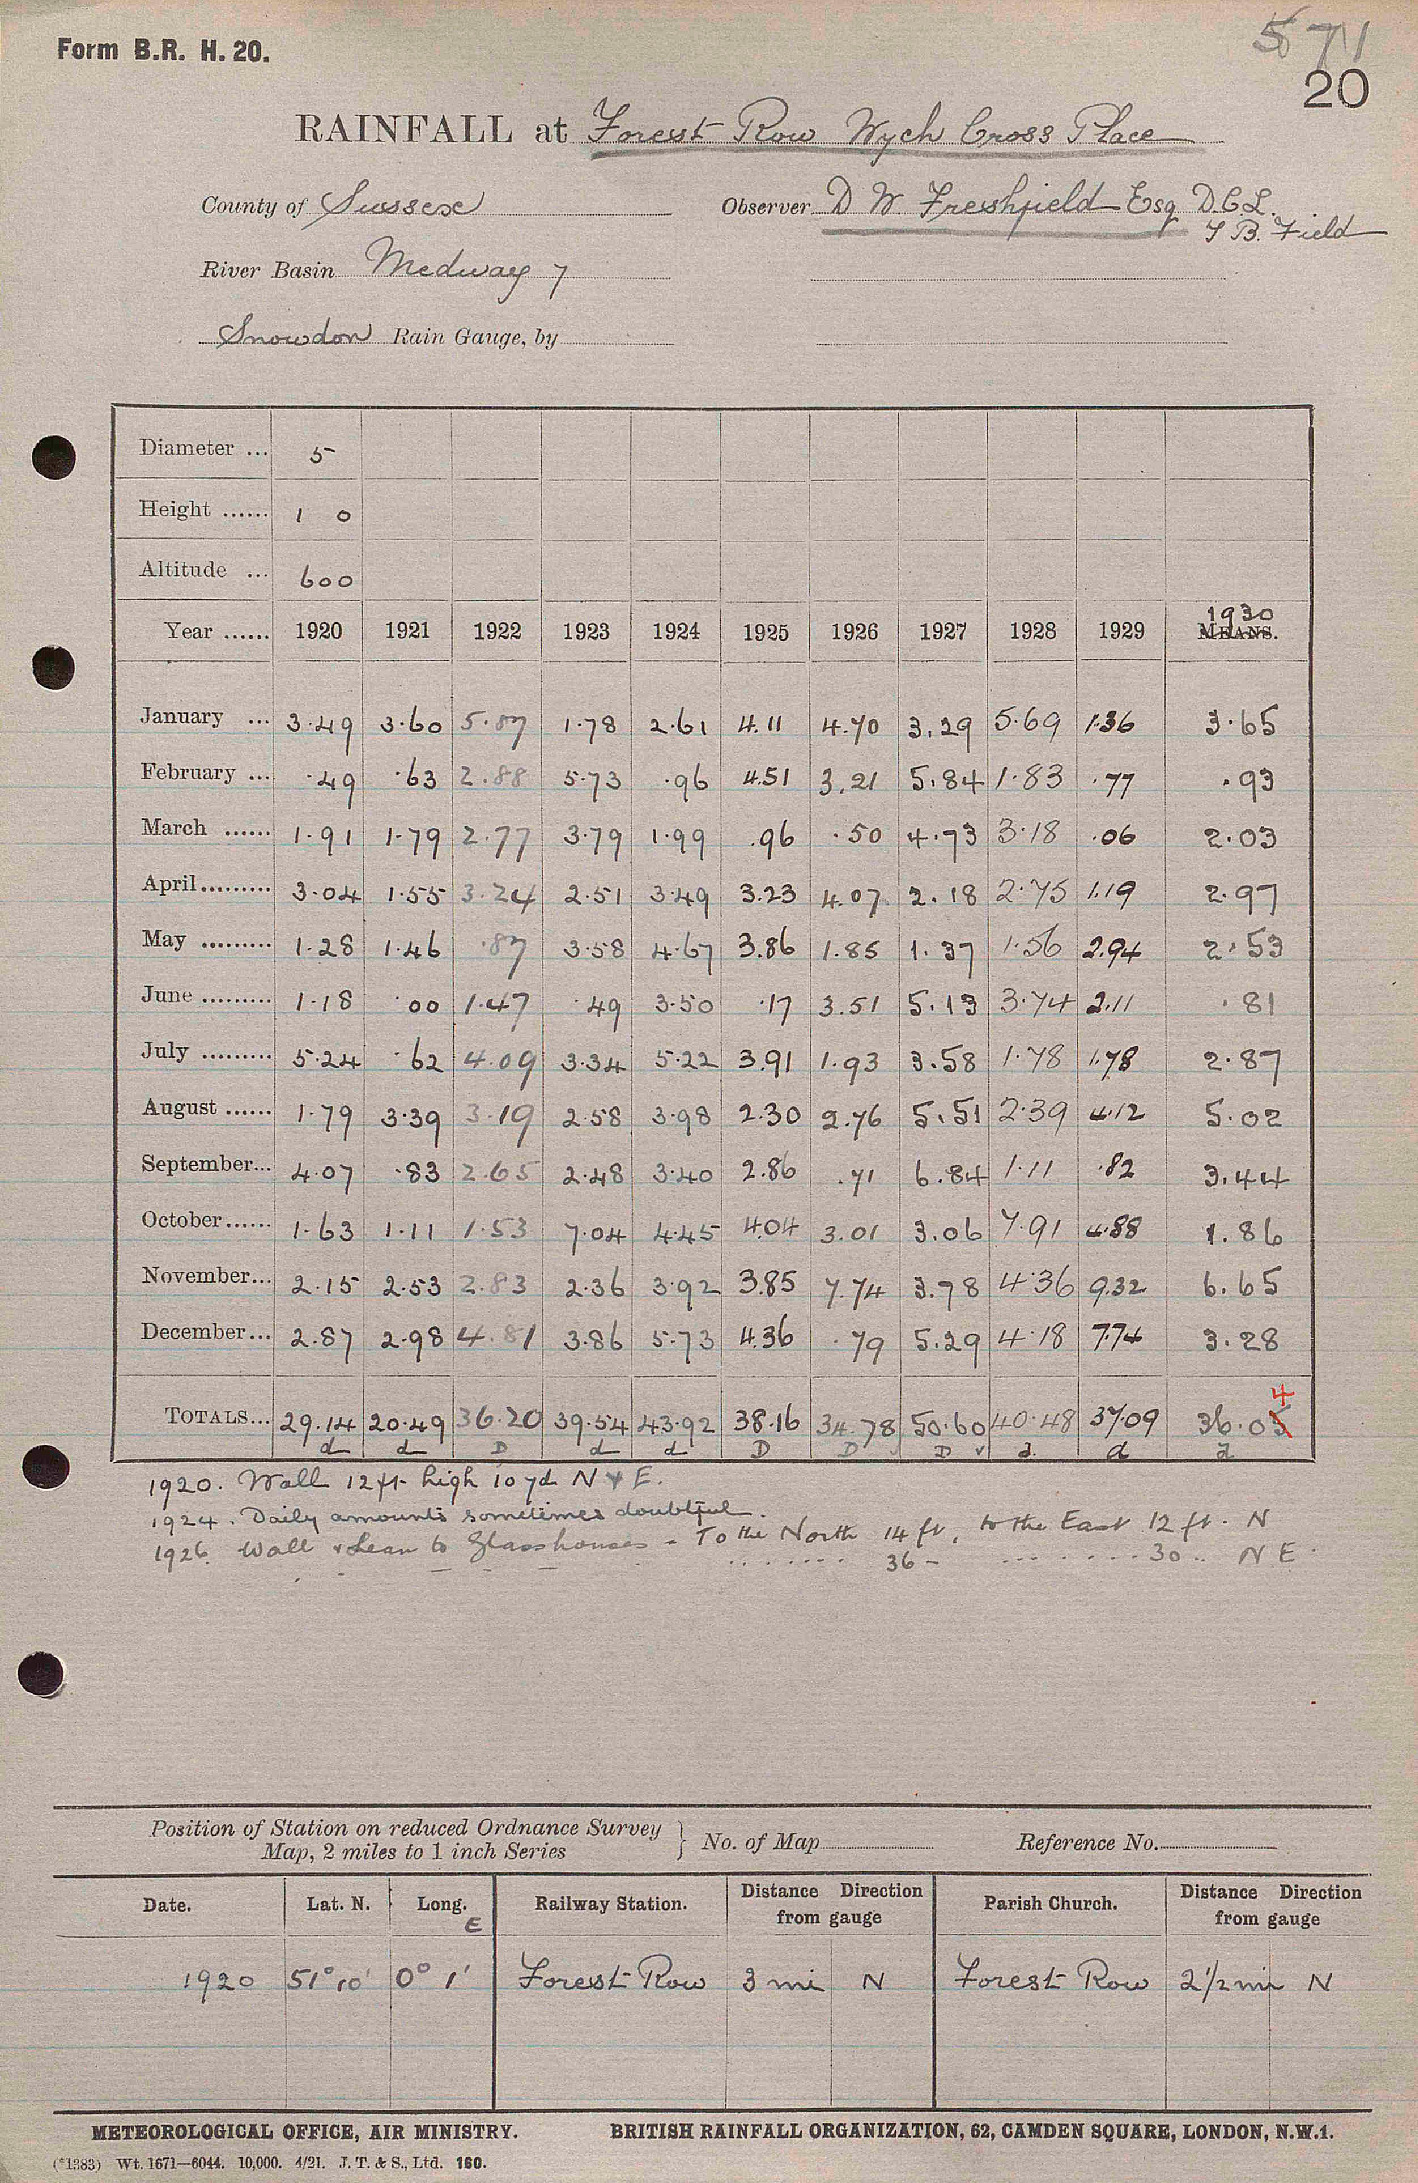 Form B.R. H. 20.
571
20
RAINFALL at Forest Row Wych Cross Place
County of Sussex Observer D W Freshfield Esq D.C.L.
T B. Field
River Basin Medway 7
Snowdon Rain Gauge, by
Diameter ... 5
Height ...... 1 0
Altitude ... 600
1930
Year ...... 1920 1921 1922 1923 1924 1925 1926 1927 1928 1929 MEANS.
January ... 3.49 3.60 5.87 1.78 2.61 4.11 4.70 3.29 5.69 1.36 3.65
February ... .49 .63 2.88 5.73 .96 4.51 3.21 5.84 1.83 .77 .93
March ...... 1.91 1.79 2.77 3.79 1.99 .96 .50 4.73 3.18 .06 2.03
April ......... 3.04 1.55 3.24 2.51 3.49 3.23 4.07 2.18 2.75 1.19 2.97
May ......... 1.28 1.46 .87 3.58 4.67 3.86 1.85 1.37 1.56 2.94 2.53
June ......... 1.18 .00 1.47 .49 3.50 .17 3.51 5.13 3.74 2.11 .81
July ......... 5.24 .62 4.09 3.34 5.22 3.91 1.93 3.58 1.78 1.78 2.87
August ...... 1.79 3.39 3.19 2.58 3.98 2.30 2.76 5.51 2.39 4.12 5.02
September... 4.07 .83 2.65 2.48 3.40 2.86 .71 6.84 1.11 .82 3.44
October...... 1.63 1.11 1.53 7.04 4.45 4.04 3.01 3.06 7.91 4.88 1.86
November... 2.15 2.53 2.83 2.36 3.92 3.85 7.74 3.78 4.36 9.32 6.65
December... 2.87 2.98 4.81 3.86 5.73 4.36 .79 5.29 4.18 7.74 3.28
4
TOTALS... 29.14 20.49 36.20 39.54 43.92 38.16 34.78 50.60 40.48 37.09 36.05
d d D d d D D D d d d
1920. Wall 12 ft high 10 yd N & E.
1924. Daily amounts sometimes doubtful.
1926. Wall & Lean to Glasshouses - To the North 14 ft, to the East 12 ft. N
36 - 30 .. N E.
Position of Station on reduced Ordnance Survey
Map, 2 miles to 1 inch Series } No. of Map Reference No.
Date. Lat. N. Long. E Railway Station. Distance Direction from gauge Parish Church. Distance Direction from gauge
1920 51° 10' 0° 1' Forest Row 3 mi N Forest Row 2½ mi N
METEOROLOGICAL OFFICE, AIR MINISTRY. BRITISH RAINFALL ORGANIZATION, 62, CAMDEN SQUARE, LONDON, N.W.1.
(*1383) Wt. 1671—6044. 10,000. 4/21. J. T. & S., Ltd. 160.